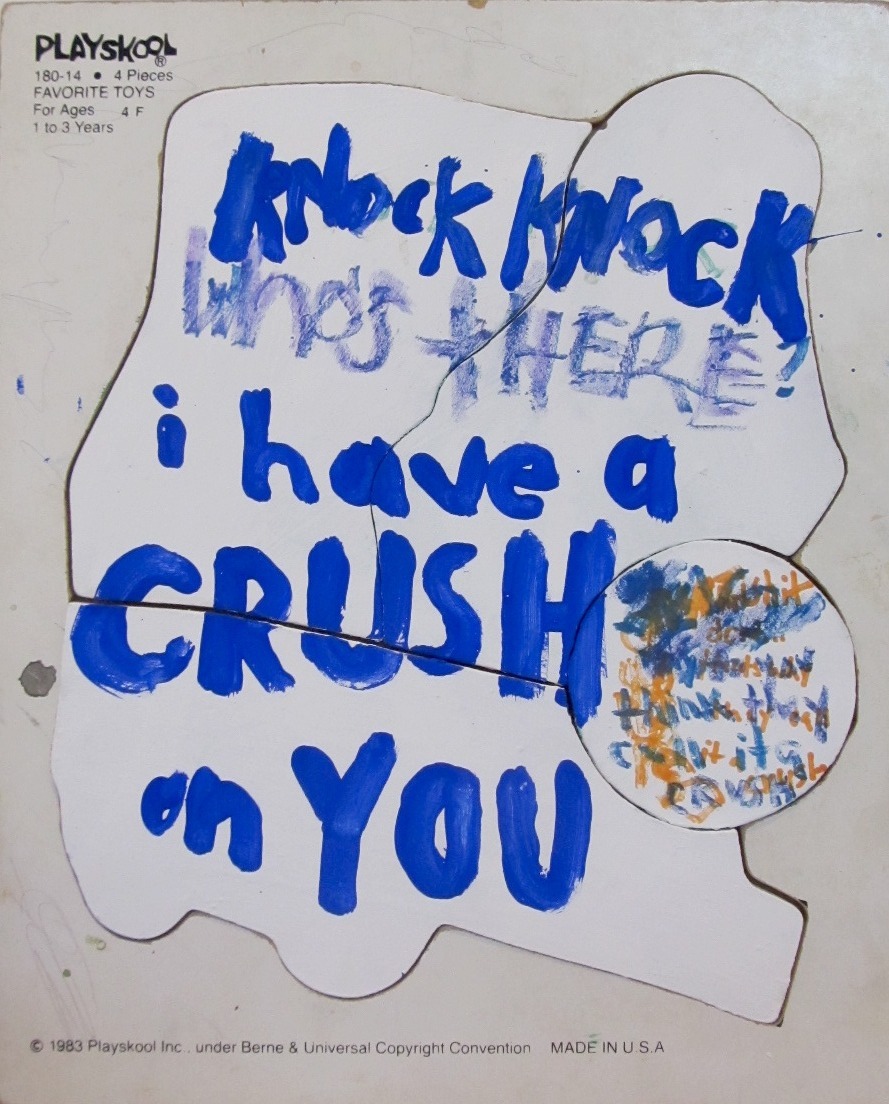 PLAYSKOOL®
180-14 • 4 Pieces
FAVORITE TOYS
For Ages 4 F
1 to 3 Years
KNOCK KNOCK
WhOS tHERE?
i have a
CRUSH
on YOU
think they
call it a
CRUSH
© 1983 Playskool Inc., under Berne & Universal Copyright Convention MADE IN U.S.A